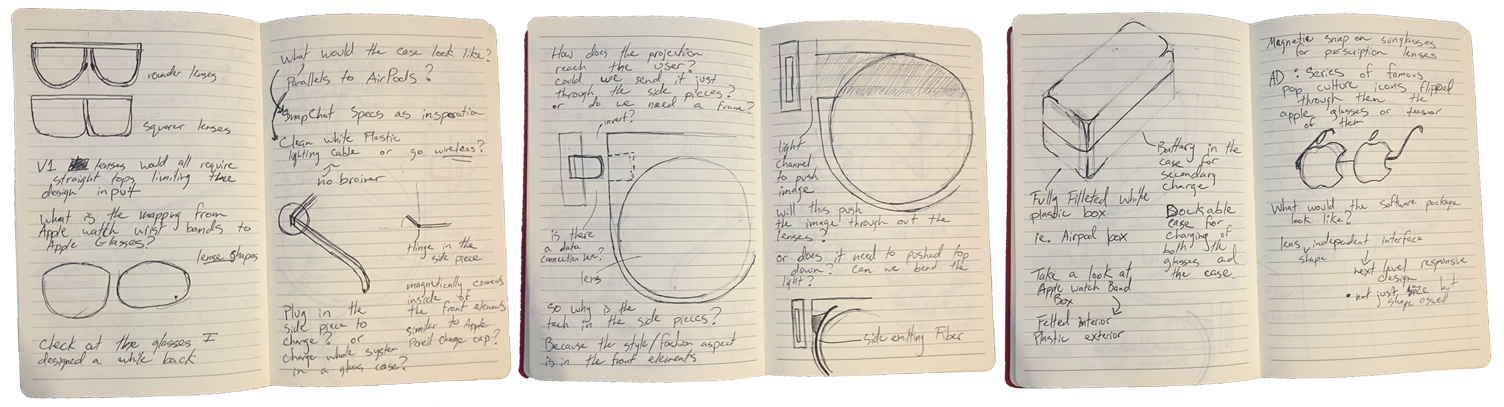 rounder lenses
squarer lenses
V1 lenses would all require
straight tops limiting the
design input
What is the mapping from
Apple watch wrist bands to
Apple Glasses?
lense shapes
Check out the glasses I
designed a while back
What would the case look like?
Parallels to AirPods?
SnapChat Specs as insperation
Clean White Plastic
lighting cable or go wireless?
no brainer
Hinge in the
side piece
magnetically connects
inside of
the front elements
similar to Apple
Pencil charge cap?
Plug in the
side piece to
charge? or
charge whole system
in a glass case?
How does the projection
reach the user?
could we send it just
through the side pieces?
or do we need a frame?
invert?
is there
a data
connection here?
lens
so why is the
tech in the side pieces?
Because the style/fashion aspect
is in the front elements
light
channel
to push
image
will this push
the image through out the
lenses?
or does it need to pushed top
down? Can we bend the
light?
side emitting Fiber
Battery in the
case for
secondary
charge
Fully Filleted White
plastic box
ie. Airpod box
Dockable
case for
charging of
both the
glasses and
the case.
Take a look at
Apple watch Band
Box
Felted interior
Plastic exterior
Magnetic snap on sunglasses
for perscription lenses
AD: Series of famous
pop culture icons flipped
through them the
apple glasses or
of them
What would the software package
look like?
lens independent interface
shape
next level responsive
design
• not just size but
shape aswell